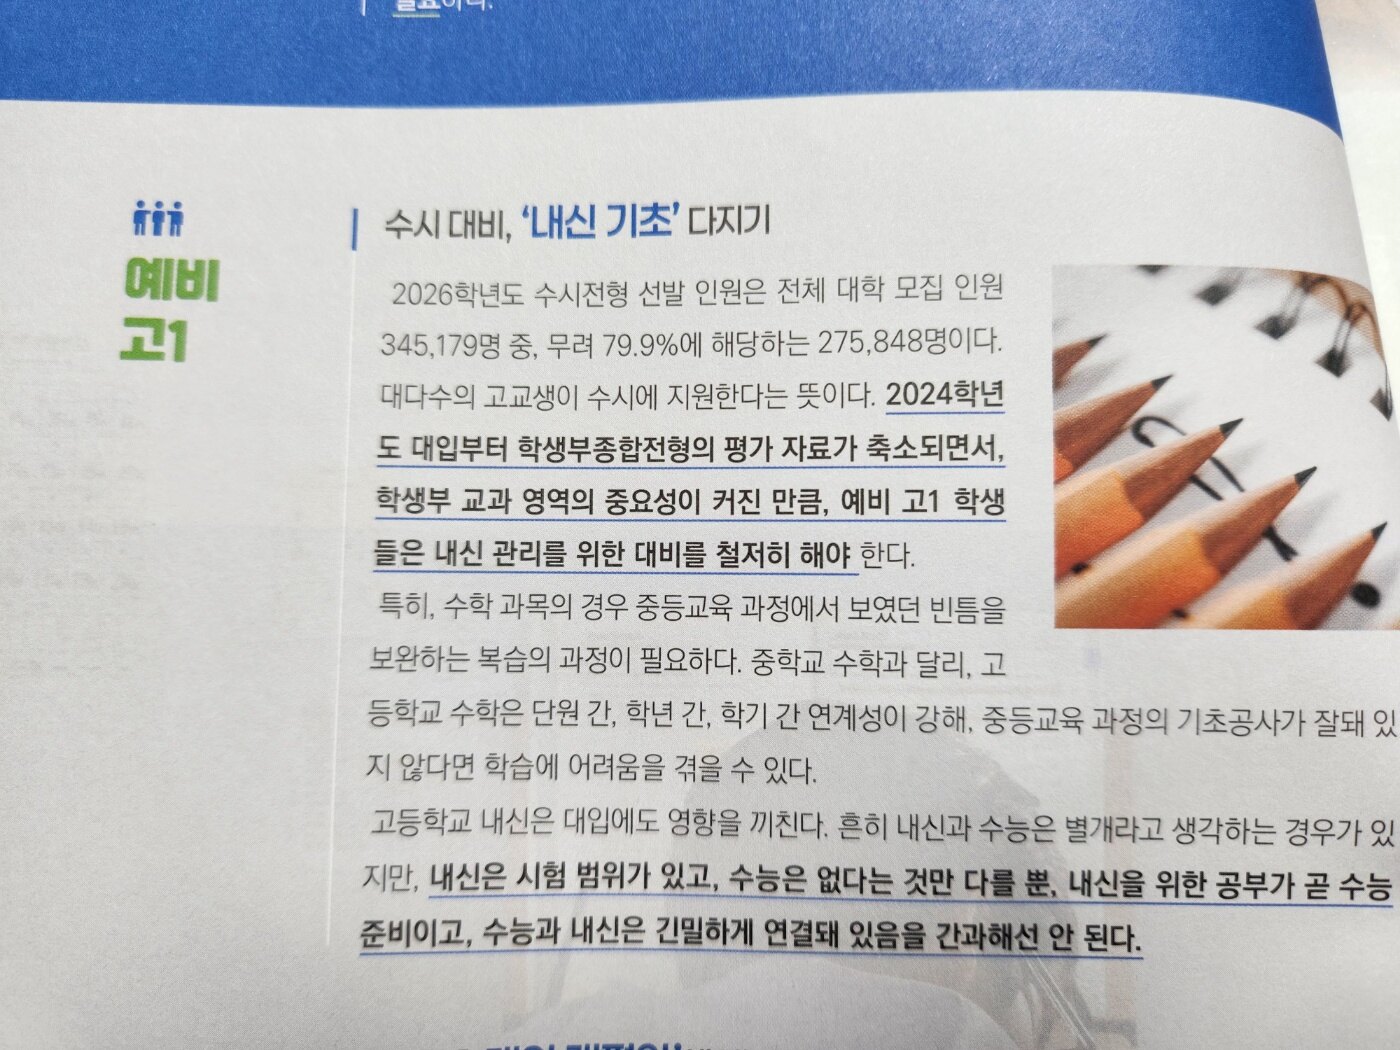 필요이다.
예비
고1
수시 대비, ‘내신 기초’ 다지기
2026학년도 수시전형 선발 인원은 전체 대학 모집 인원
345,179명 중, 무려 79.9%에 해당하는 275,848명이다.
대다수의 고교생이 수시에 지원한다는 뜻이다. 2024학년
도 대입부터 학생부종합전형의 평가 자료가 축소되면서,
학생부 교과 영역의 중요성이 커진 만큼, 예비 고1 학생
들은 내신 관리를 위한 대비를 철저히 해야 한다.
특히, 수학 과목의 경우 중등교육 과정에서 보였던 빈틈을
보완하는 복습의 과정이 필요하다. 중학교 수학과 달리, 고
등학교 수학은 단원 간, 학년 간, 학기 간 연계성이 강해, 중등교육 과정의 기초공사가 잘돼 있
지 않다면 학습에 어려움을 겪을 수 있다.
고등학교 내신은 대입에도 영향을 끼친다. 흔히 내신과 수능은 별개라고 생각하는 경우가 있
지만, 내신은 시험 범위가 있고, 수능은 없다는 것만 다를 뿐, 내신을 위한 공부가 곧 수능
준비이고, 수능과 내신은 긴밀하게 연결돼 있음을 간과해선 안 된다.